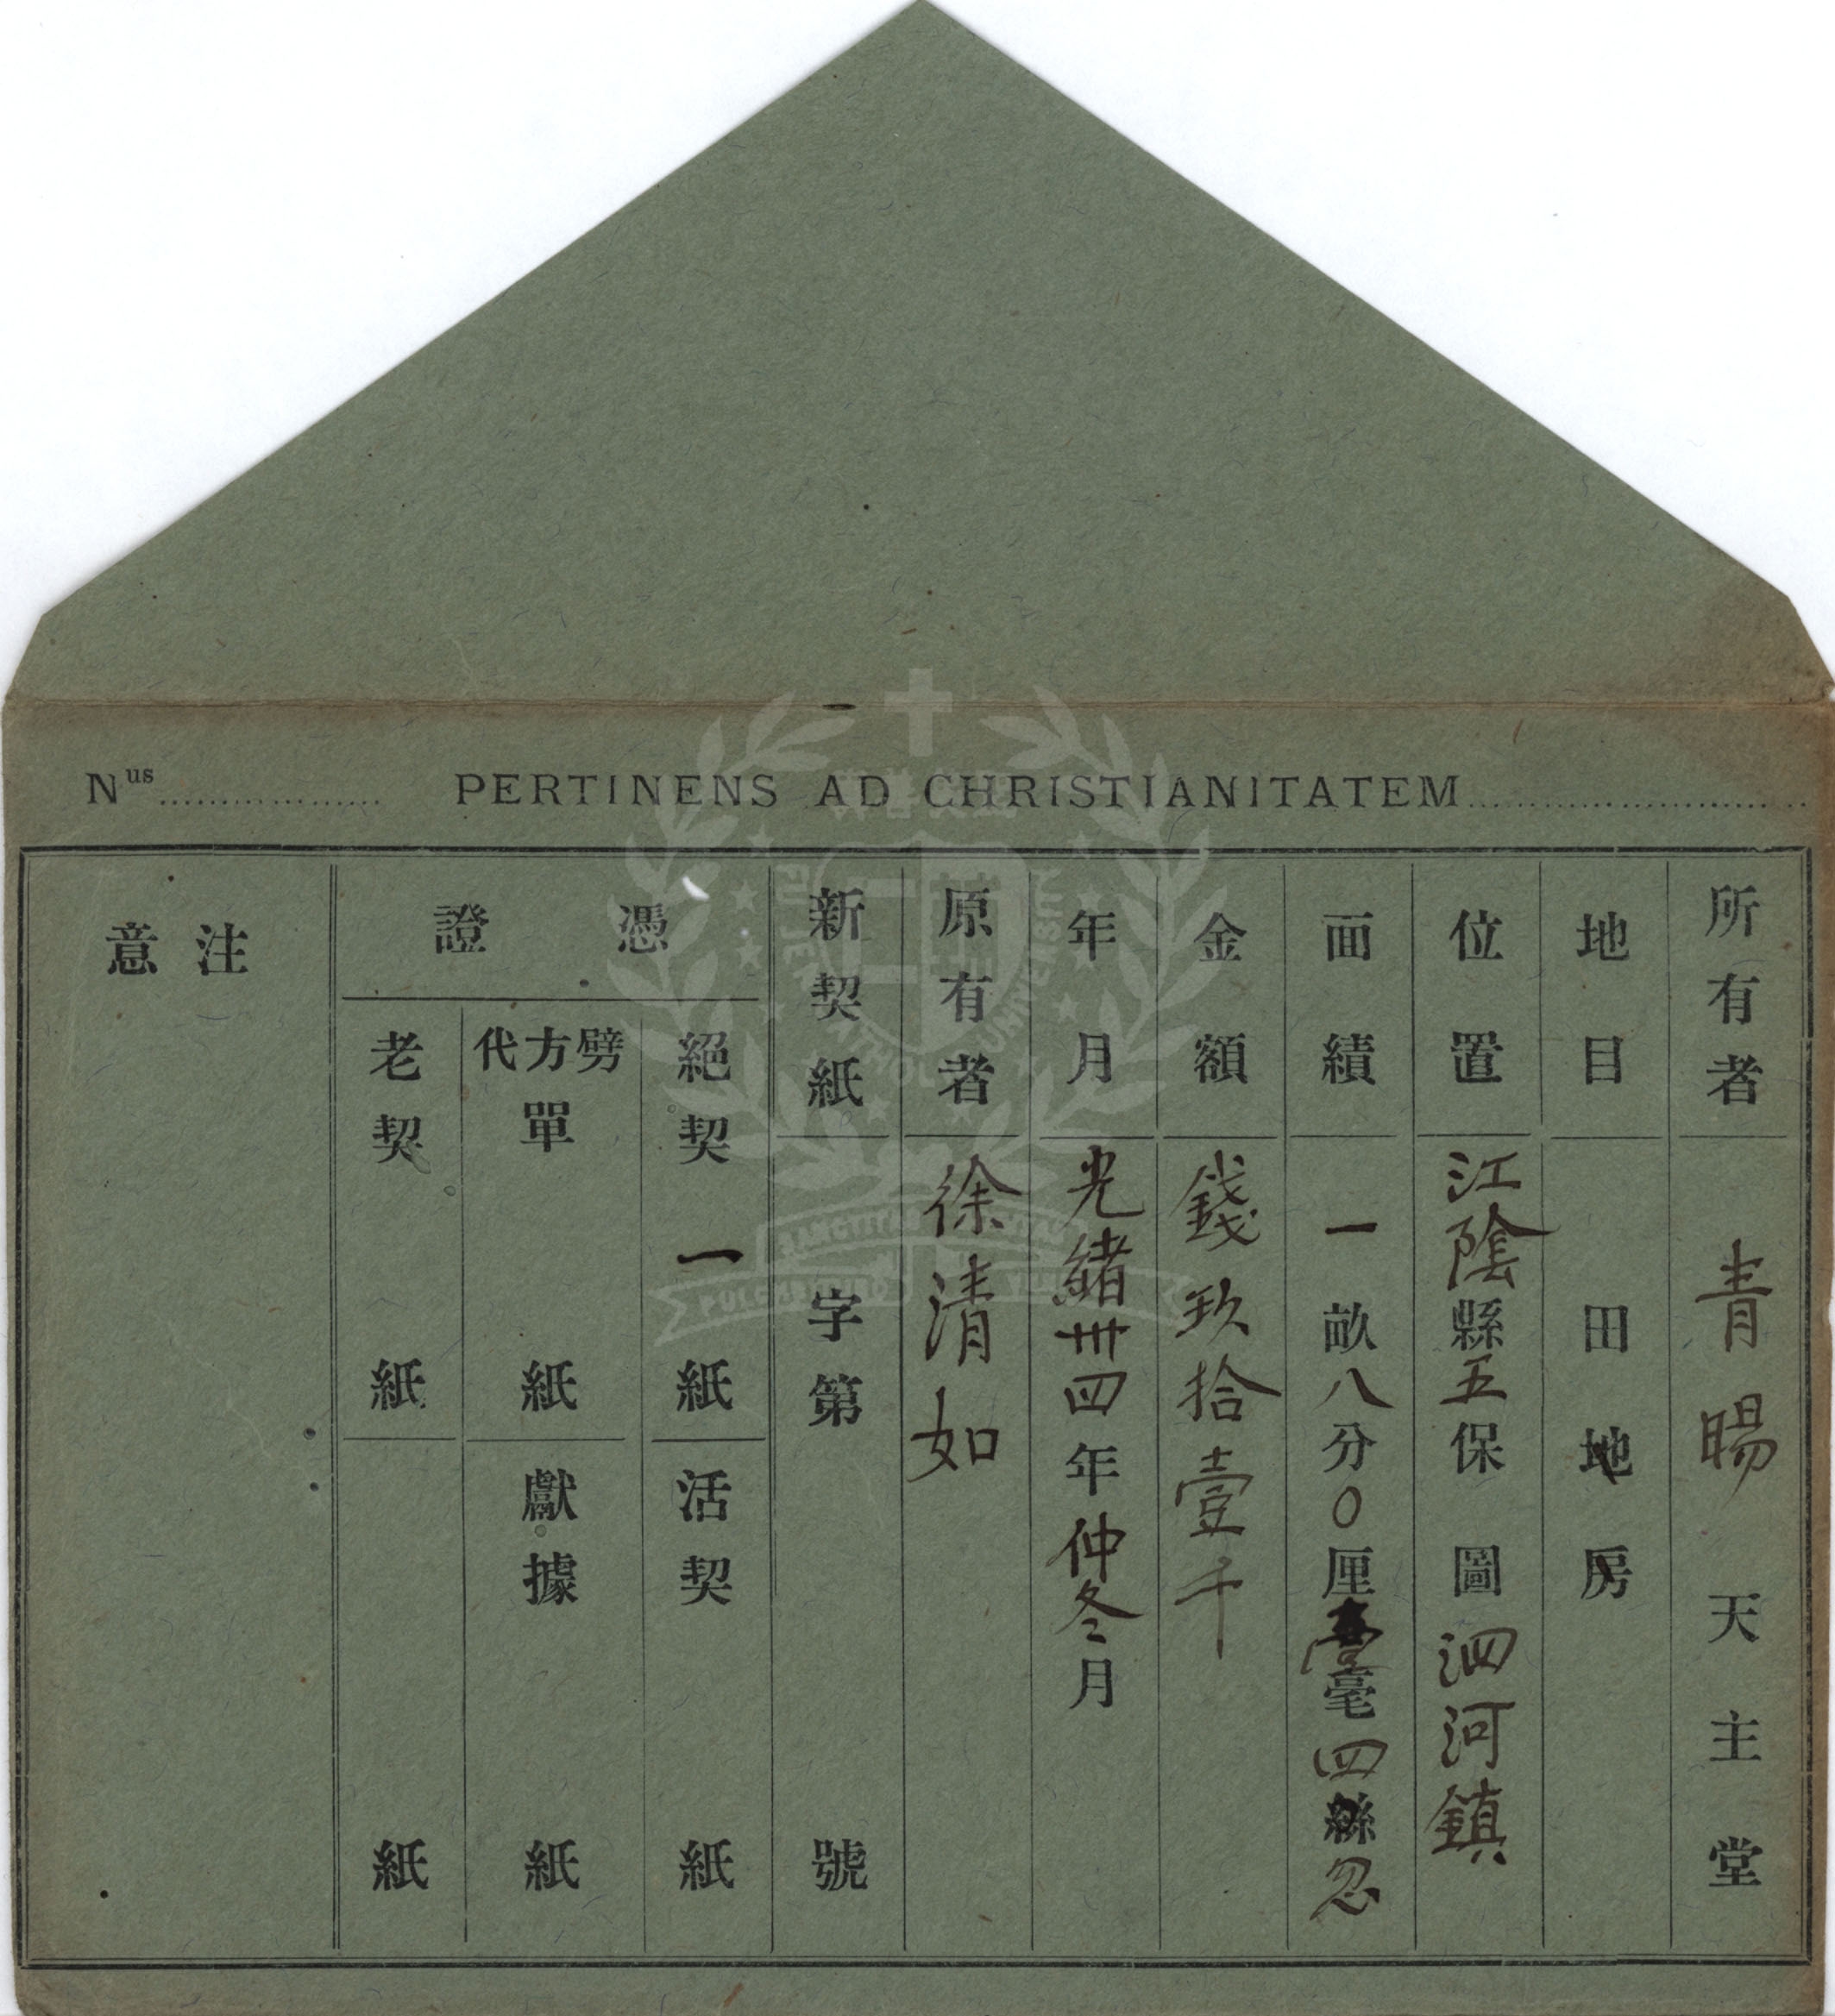 Nus PERTINENS AD CHRISTIANITATEM
所有者 青暘天主堂
地目 田地房
位置 江陰縣五保圖泗河鎮
面績 一畝八分〇厘壹毫四絲忽
金額 錢玖拾壹千
年月 光緒卅四年仲冬月
原有者 徐清如
新契紙 字第號
憑證
絕契 一紙
活契 紙
劈方代單 紙
獻據 紙
老契 紙
紙
注意